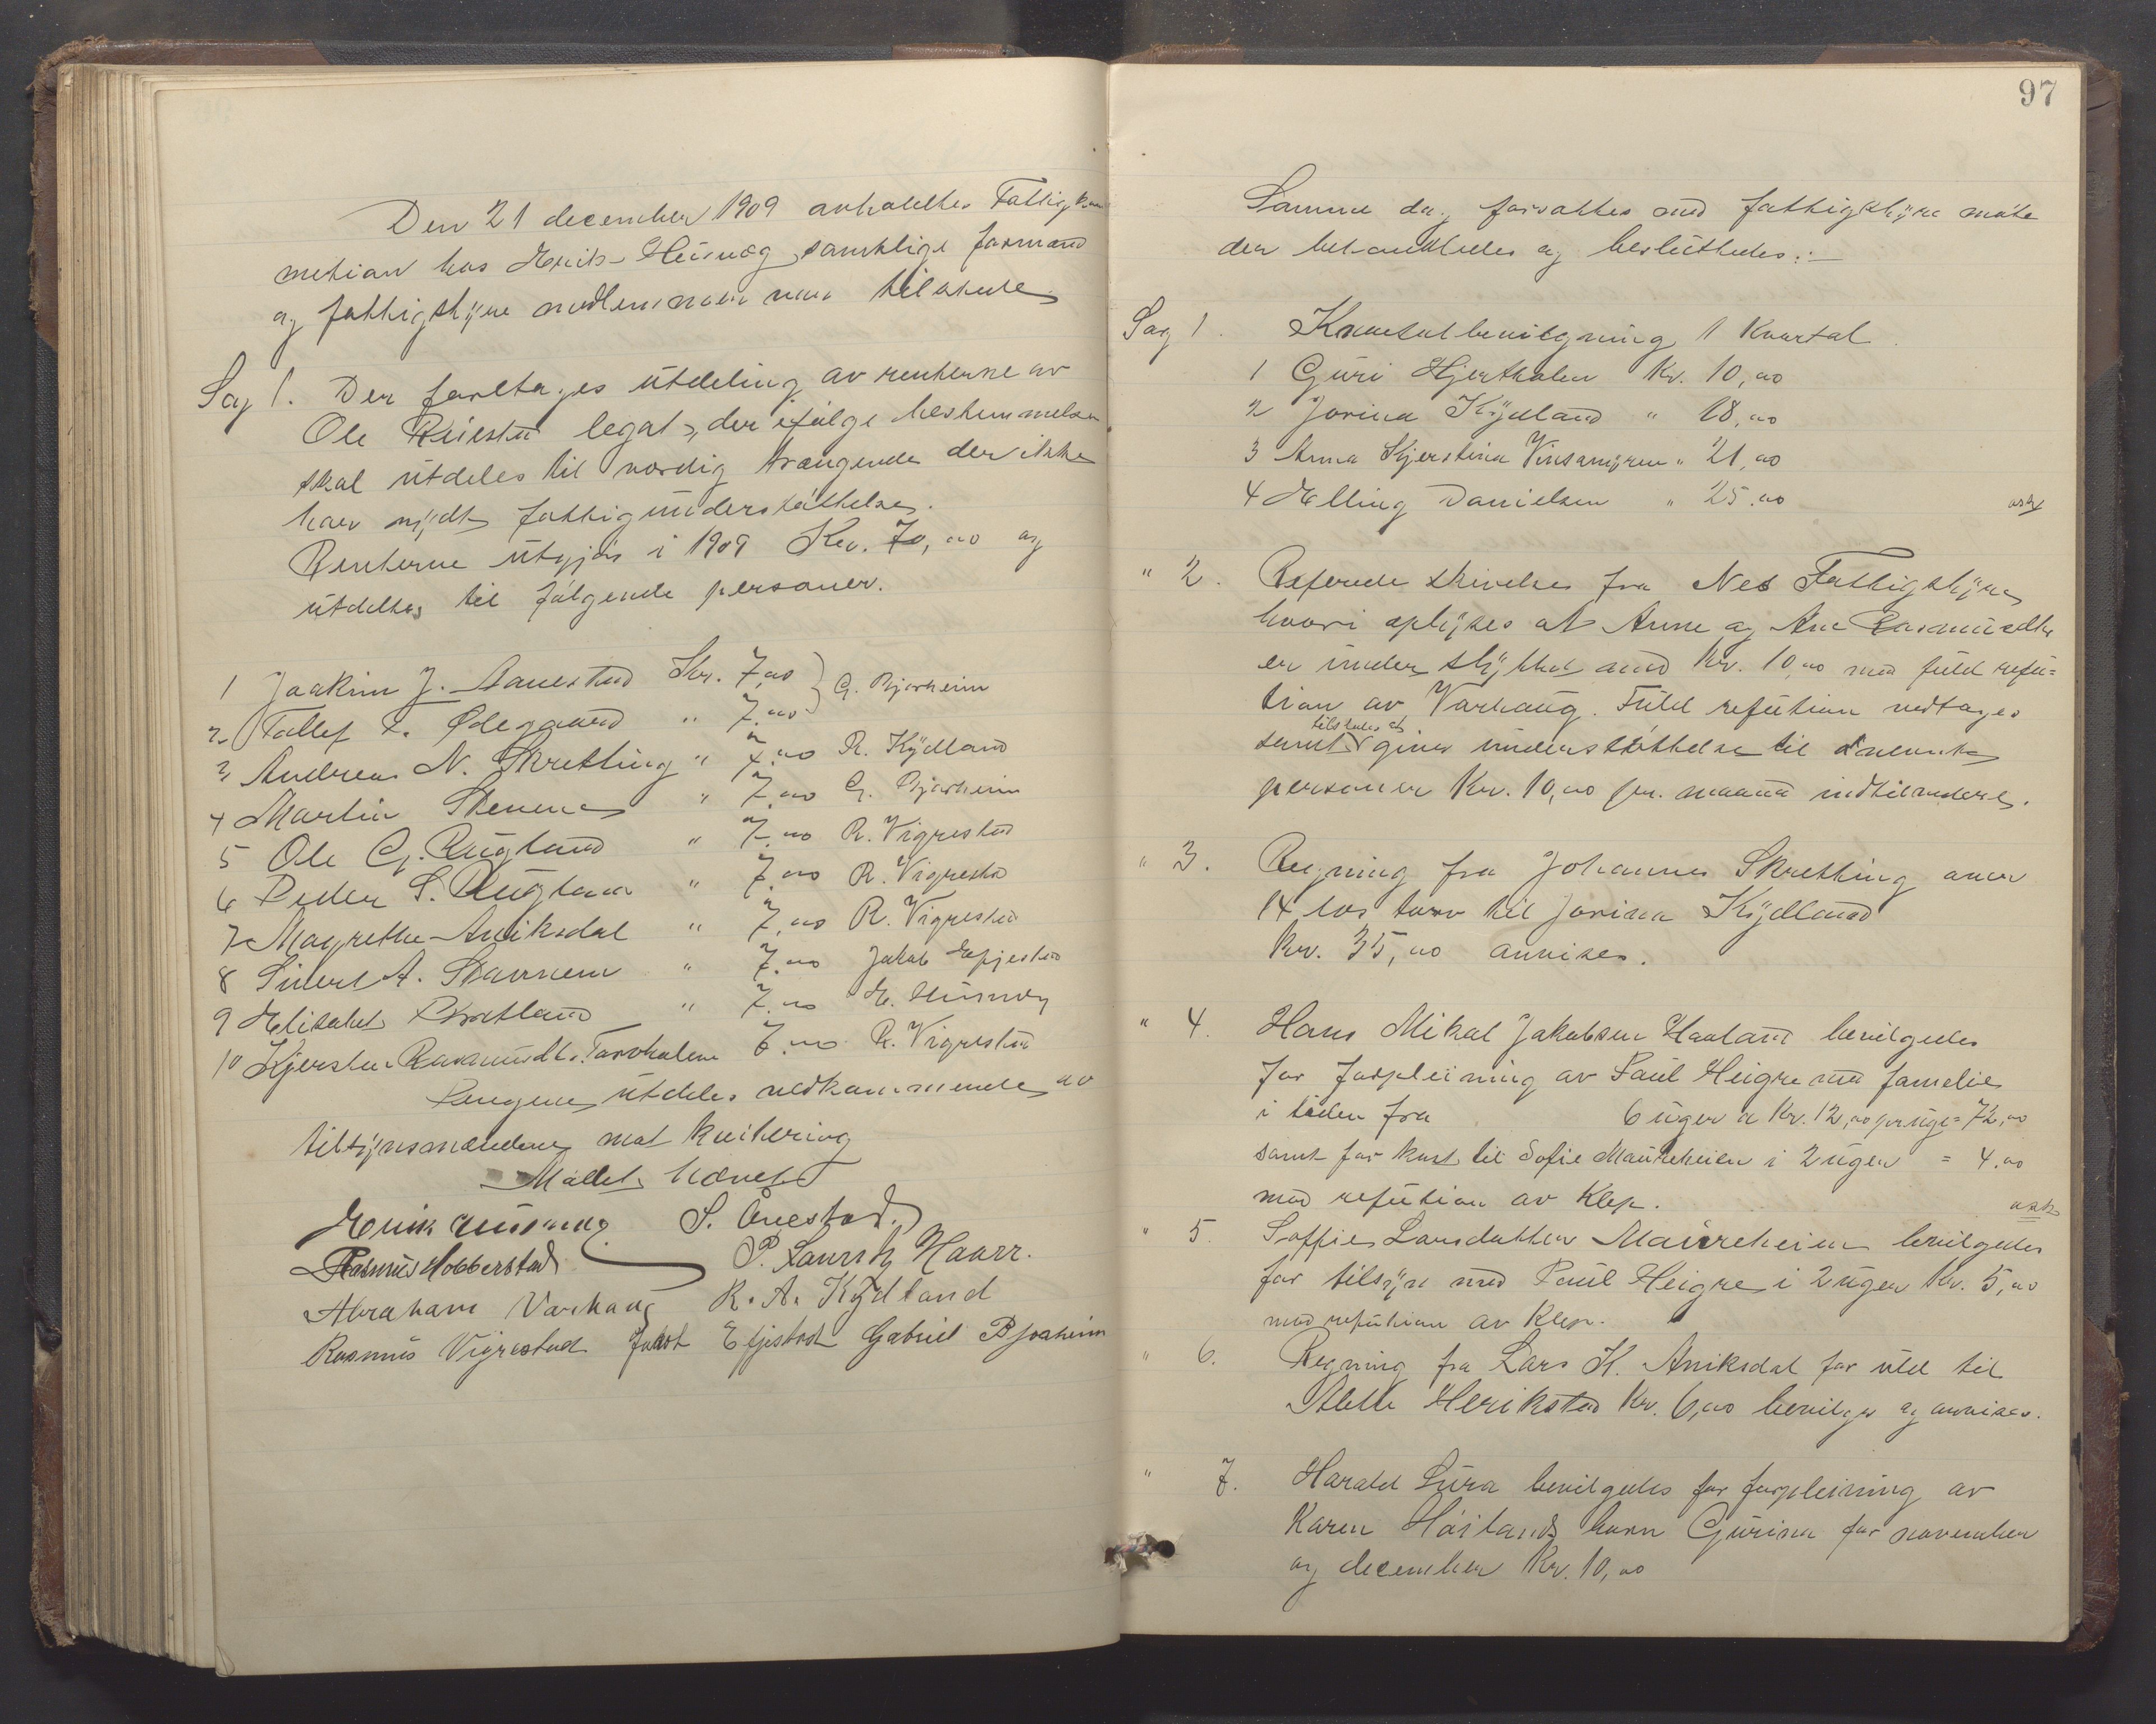 Den 21 december 1909 avholdtes Fattigkom
metion hos Erik Husvæg samtlige formænd
og fattigstyre medlemmer var tilstede
Sag 1. Der foretages utdeling av renterne av
Ole Reiestad legat, der ifølge bestemmelsen
skal utdeles til værdig trængende der ikke
har nydt fattigunderstøttelse.
Renterne utgjør i 1909 Kr. 70,00 og
utdeltes til følgende personer.
1 Joakim J. Aanestad Kr. 7,00 } G. Bjorheim
2 Tollef T. Ødegaard " 7.00
3 Andreas N. Skretting " 7.00 R. Kydland
4 Martin Stenene " 7.00 G. Bjorheim
5 Ole G. Rugland " 7.00 R. Vigrestad
6 Peder S. Rugland " 7.00 R. Vigrestad
7 Magrethe Aniksdal " 7.00 R. Vigrestad
8 Sivert A. Stavnem " 7.00 Jakob Efjestad
9 Elisabet Bratland " 7.00 E. Husvæg
10 Kjersten Rasmusdtr. Torvhalen 7.00 R. Vigrestad
Pengene utdeles vedkommende av
tilsynsmændene mot kvitering
Mødet hævet
Erik Husvæg S. Ånestad.
Rasmus Hobberstad P. Lauritz Haarr.
Abraham Varhaug R. A. Kydland
Rasmus Vigrestad Jakob Efjestad Gabriel Bjorheim
97
Samme dag forsattes med fattigstyre møte
der behandledes og besluttedes:
Sag 1. Kvartalbevilgning 1 Kvartal
1 Guri Hjerthalen Kr. 10,00
2 Jorina Kydland " 18,00
3 Anna Kjerstina Vinsamyren " 21,00
4 Elling Danielsen " 25.00
" 2. Referede skrivelse fra Nes Fattigstyre
hvori oplyses at Anne og Ane Rasmusdtr
er understyttet med Kr. 10,00 med fuld refu=
tion av Varhaug. Fuld refution vedtages
tilstedes at
samt gives understøttelse til nævnte
personer Kr. 10,00 pr. maaned indtilvidere.
" 3. Regning fra Johannes Skretting over
14 los torv til Jorina Kydland
Kr. 35,00 anvises.
" 4. Hans Mikal Jakobsen Haaland bevilgedes
for forpleining av Paul Heigre med familie
i tiden fra 6 uger a Kr. 12,00 pr uge = 72,00
samt for kost til Sofie Maureheien i 2 uger = 4.00
med refution av Klep.
" 5. Soffie Larsdatter Maureheien bevilgedes
for tilsyn med Paul Heigre i 2 uger Kr. 5,00
med refution av Klep.
" 6. Regning fra Lars K. Aniksdal for uld til
Alette Herikstad Kr. 6,00 bevilges og anvises.
" 7. Harald Lura bevilgedes for forpleining av
Karen Høilands barn Gurina for november
og december Kr. 10,00